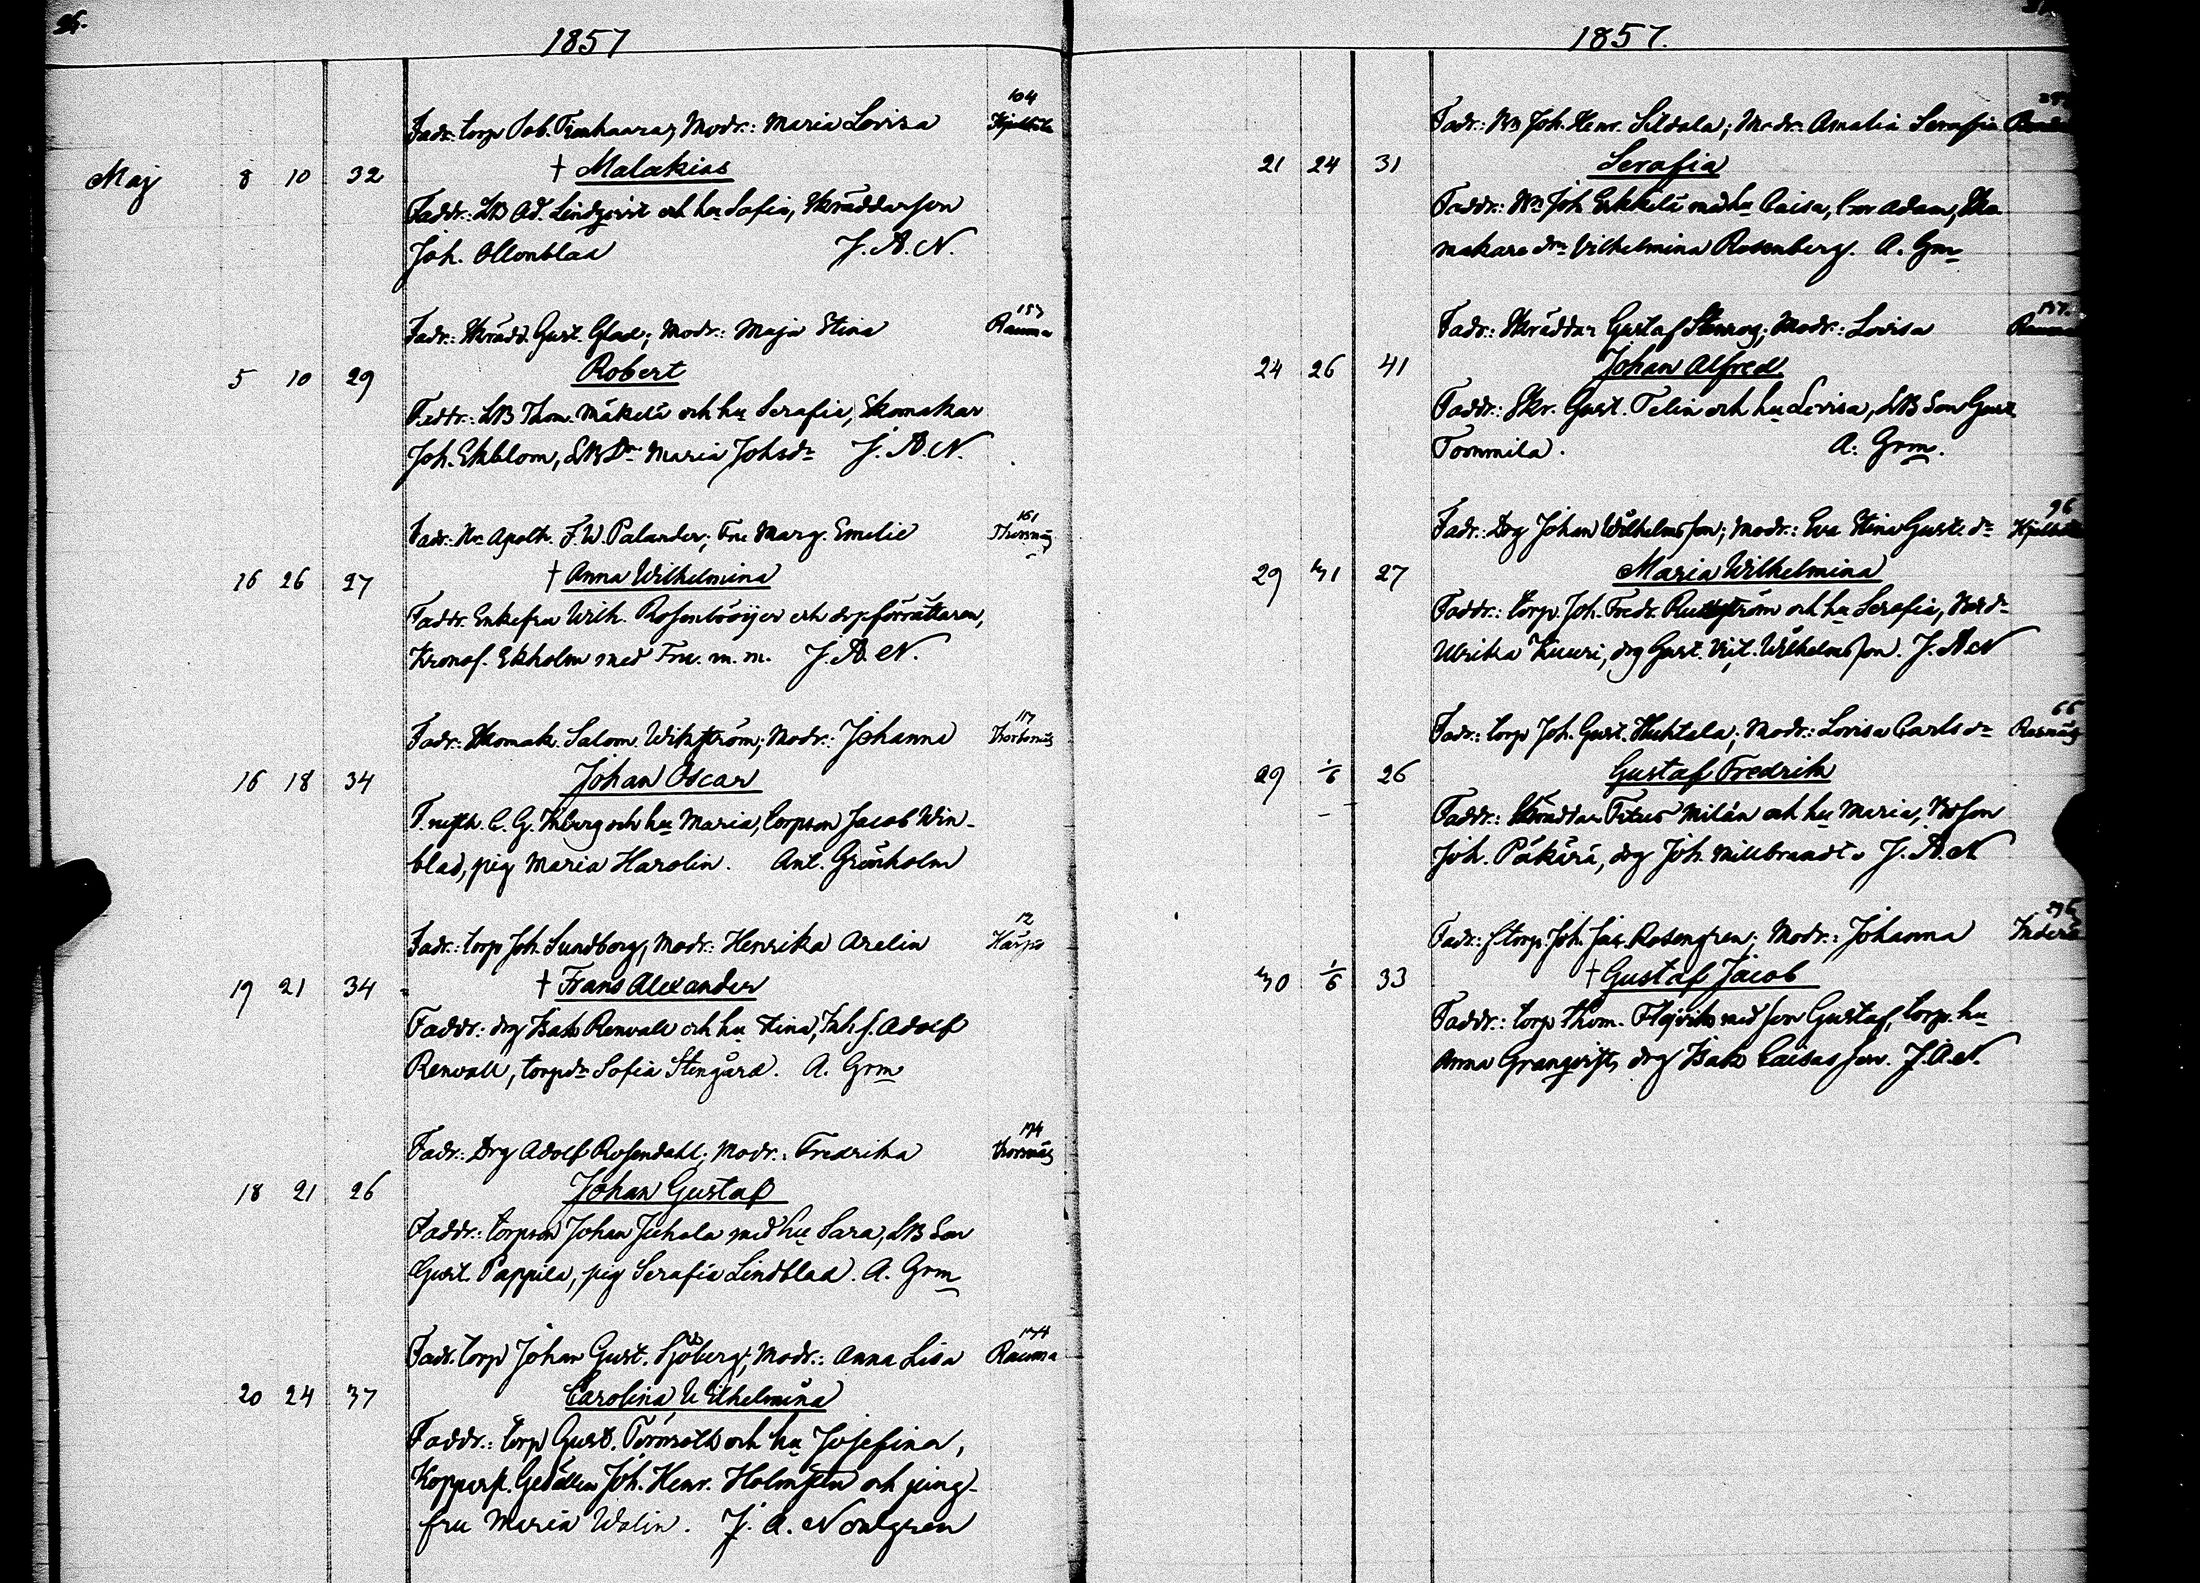 26.
1857
Fadr: torp Job. Modr: Maria Lovisa 104
Maj 8 10 32 † Malakias
Faddr: LB Ad. Lindqvist och hu Sofia, Skräddarson
Joh. Ollonblad J. A. N.
Fadr: Skrädd. Gust. Glad; Modr: Maja Stina 153 Rauma
5 10 29 Robert
Faddr: LB Thom. Mäkelä och hu Serafia, Skomakar
Joh. Ekblom, LB Dr Maria Johsdr J. A. N.
Fadr: Hr Apoth. F. W. Palander; Fru Marg. Emelie 161 Thorsnäs
16 26 27 † Anna Wilhelmina
Faddr. Enkefru Wilh. Rosenbröijer och dopförrättaren,
Kronof. Ekholm med Fru. m. m. J. A. N.
Fadr: Skomak. Salom. Wikström; Modr: Johanna 117
16 18 34 Johan Oscar
C. G. och hu Maria, torpson Jacob Win-
blad, pig Maria Harolin. Ant. Grönholm
Fadr: torp Joh. Sundberg; Modr: Henrika Arelin 12
19 21 34 † Frans Alexander
Faddr: drg Isak Renvall och hu Stina, Inh. f. Adolf
Renvall, torpdr Sofia Stengård. A. Grm
Fadr: Drg Adolf Rosendahl; Modr: Fredrika 174
18 21 26 Johan Gustaf
Faddr: torpson Johan Juhala med hu Sara, LB Son
Gust. Pappila, pig Serafia Lindblad. A. Grm
Fadr. torp Johan Gust. Sjöberg; Modr: Anna Lisa 174 Rauma
20 24 37 Carolina Wilhelmina
Faddr: torp Gust. Törnroth och hu Josefina,
Kopparsl. Gesällen Joh. Henr. Holmsten och jung-
fru Maria Walin. J. A. Nordgren
1857.
Fadr: Joh. Henr. Sildala; Modr: Amalia Serafia
21 24 31 Serafia
Faddr: Joh. Erkkilä med hu Caisa, Adam, Sko
makare dr Vilhelmina Rosenberg. A. Grm
Fadr: Skräddar Gustaf Stenrog; Modr: Lovisa 157. Rauma
24 26 41 Johan Alfred
Faddr: Skr. Gust. Telin och hu Lovisa, LB Son Gust
Tommila. A. Grm.
Fadr: Drg Johan Wilhelmsson; Modr: Eva Stina Gusts dr 96
29 31 27 Maria Wilhelmina
Faddr: torp. Joh. Fredr. och hu Serafia,
Ulrika Kuuri, drg Gust. Vit. Wilhelmsson. J. A. N
Fadr: torp Joh. Gust. Huhtala; Modr: Lovisa Carls dr 66
29 1/6 26 Gustaf Fredrik
Faddr: Skräddar Titus Milán och hu Maria,
Joh. Päkärä, drg Joh. Millbrandt. J. A. N
Fadr: Joh. Jac. Rosengren; Modr: Johanna
30 1/6 33 † Gustaf Jacob
Faddr: torp Thom. med son Gustaf, torp. hu
Anna Granqvist, drg Isak Caisasson. J. A. N.